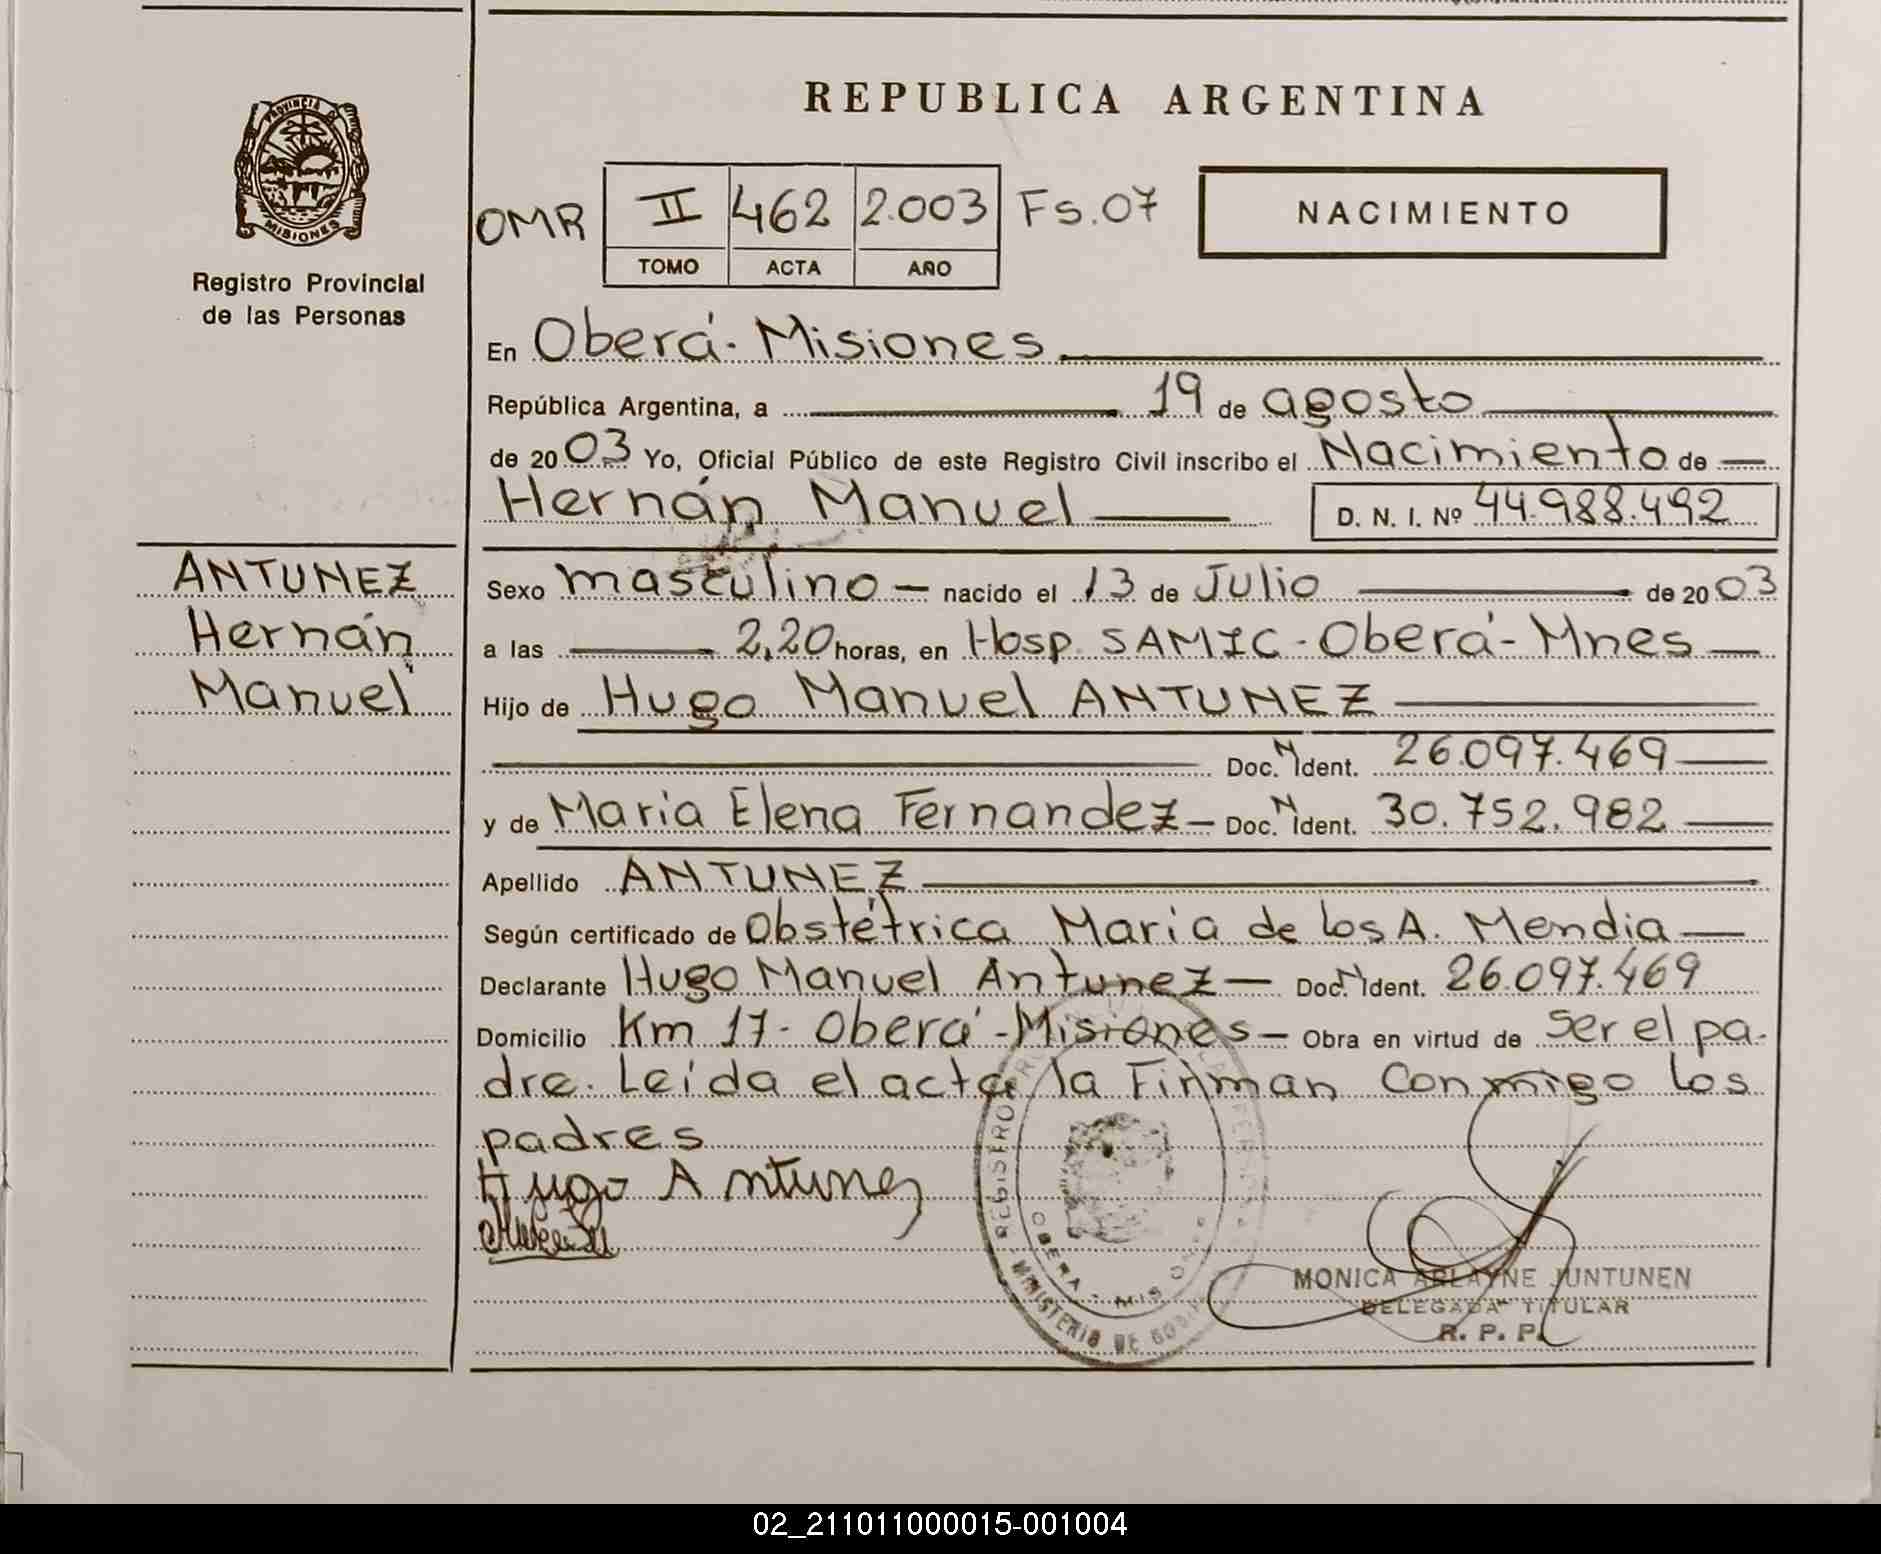 REPUBLICA ARGENTINA
PROVINCIA DE
MISIONES
Registro Provincial
de las Personas
OMR II 462 2.003 Fs.07
TOMO ACTA AÑO
NACIMIENTO
En Oberá-Misiones
República Argentina, a 19 de agosto
de 2003 Yo, Oficial Público de este Registro Civil inscribo el Nacimiento de
Hernán Manuel D. N. I. Nº 44.988.492
ANTUNEZ
Hernán
Manuel
Sexo masculino nacido el 13 de Julio de 2003
a las 2,20 horas, en Hosp. SAMIC-Oberá-Mnes
Hijo de Hugo Manuel ANTUNEZ
Doc. N Ident. 26.097.469
y de Maria Elena Fernandez Doc. N Ident. 30.752.982
Apellido ANTUNEZ
Según certificado de Obstétrica Maria de los A. Mendia
Declarante Hugo Manuel Antunez Doc. N Ident. 26.097.469
Domicilio Km 17-Oberá-Misiones Obra en virtud de Ser el pa-
dre. Leída el acta la Firman Conmigo los
padres
Hugo Antunez
REGISTRO
OBERA - MISIONES
MINISTERIO DE
MONICA ARLAYNE JUNTUNEN
DELEGADA TITULAR
R. P. P.
02_211011000015-001004